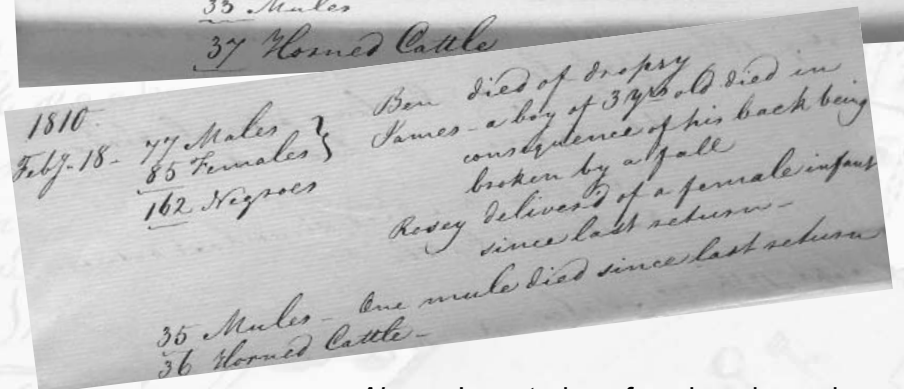 33 Mules
37 Horned Cattle
1810
Feby. 18 - 77 Males
85 Females
162 Negroes
Ben died of dropsy
James - a boy of 3 yrs old died in
consequence of his back being
broken by a fall
Rosey deliver'd of a female infant
since last return -
35 Mules - One mule died since last return
36 Horned Cattle -